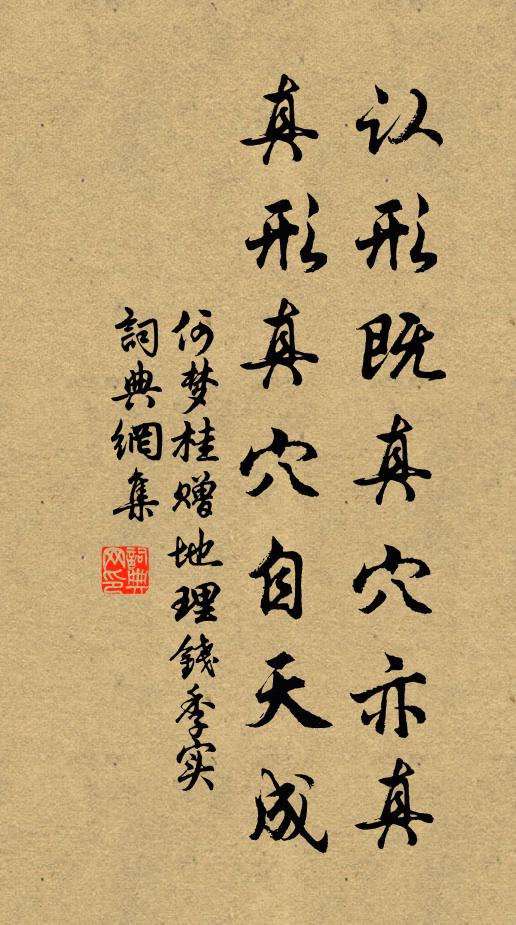 认形既真穴亦真
真形真穴自天成
何梦桂赠地理錢季实
詞典網集
詞典
网印